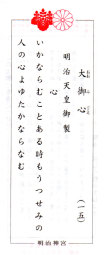 大御心
おお み ごころ
(一五)
明治天皇御製
心
いかならむことある時もうつせみの
人の心よゆたかならなむ
明治神宮